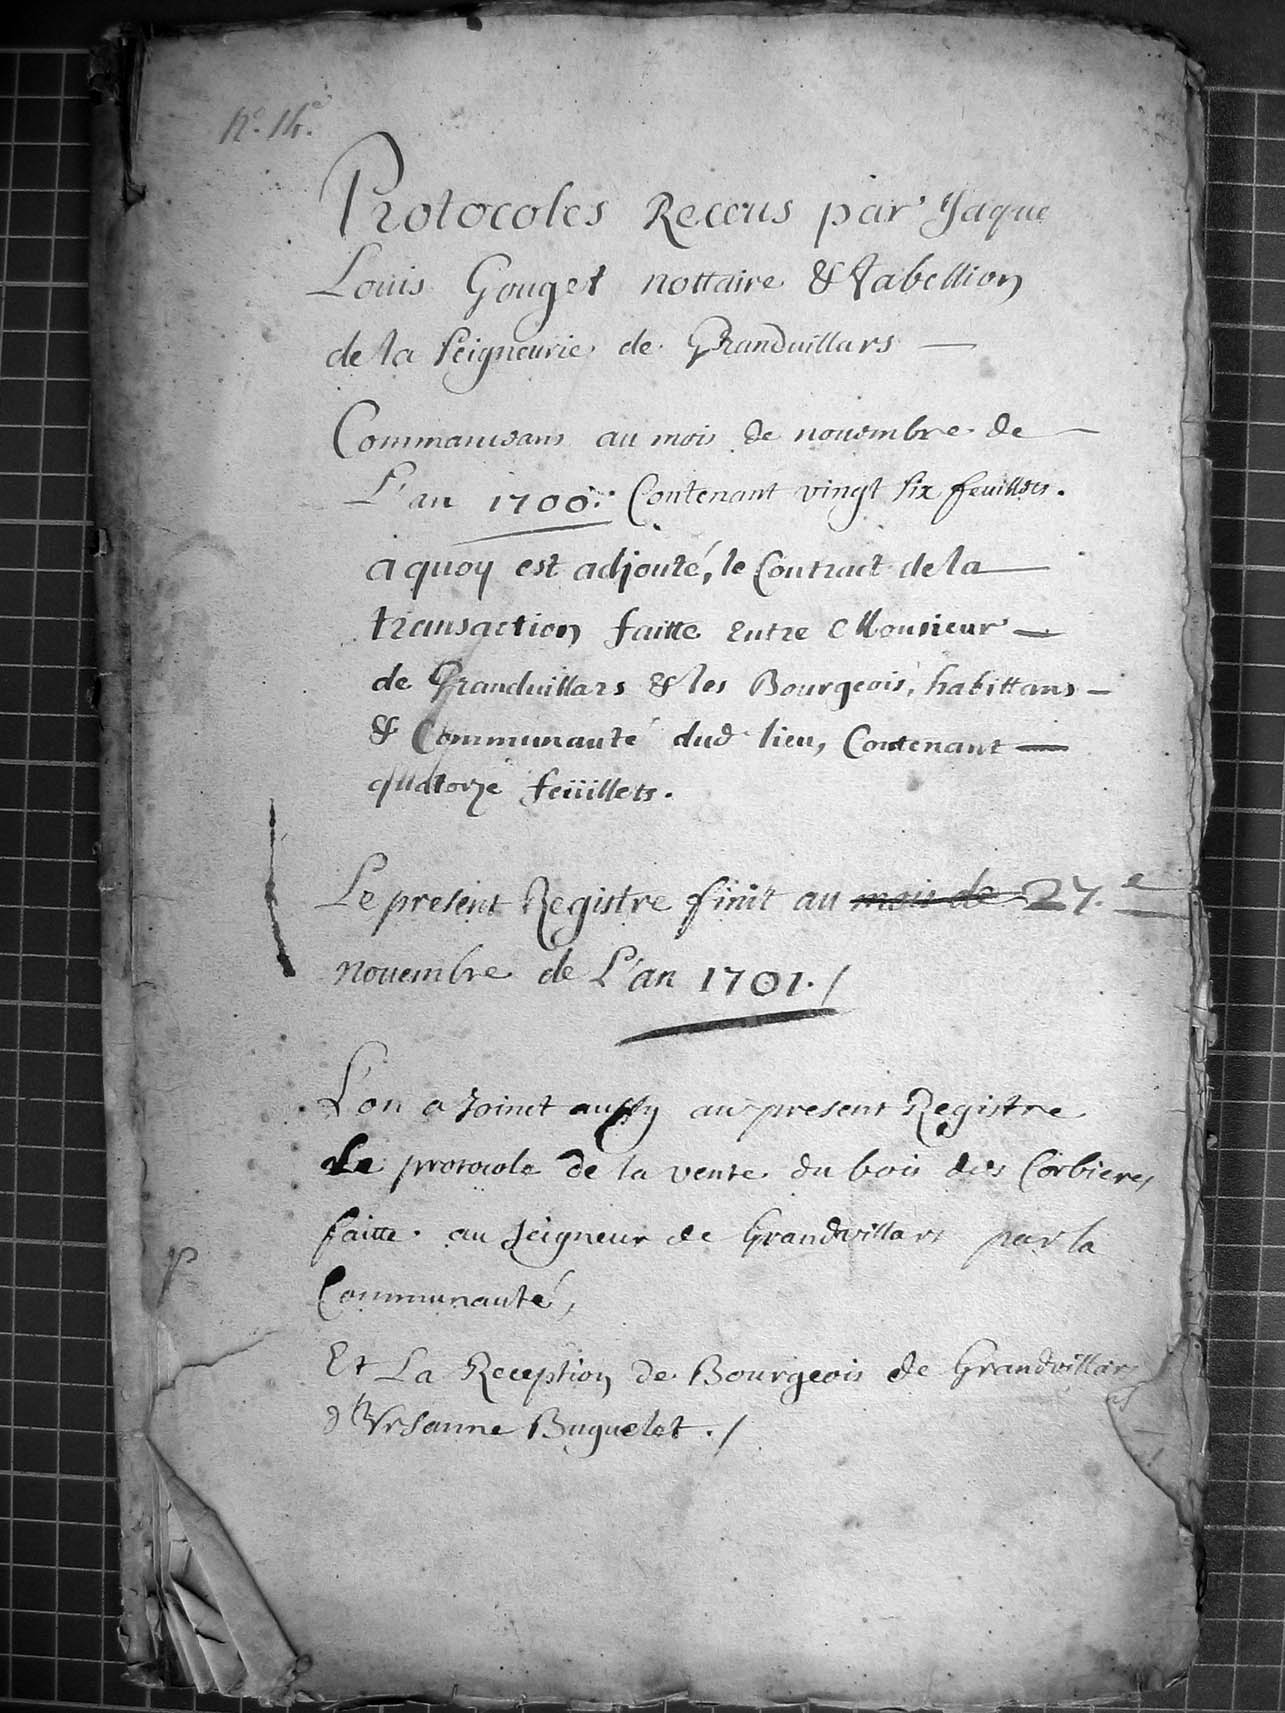 N.º 14.º
Protocoles Receus par Jaque
Louis Gouget nottaire & Tabellion
de la Seigneurie de Granduillars —
Commancans au mois de nouembre de —
L'an 1700. Contenant vingt six feuillets.
a quoy est adjouté, le Contract de la —
transaction faitte entre Monsieur —
de Granduillars & les Bourgeois, habittans —
& Communauté dud. lieu, Contenant —
quatorze feüillets.
Le present Registre finit au mois de 27.e
Nouembre de L'an 1701. /
L'on a Joinct aussy au present Registre
Le protocole de la vente du bois des Corbieres
faitte au Seigneur de Grandvillars par la
Communauté,
Et La Reception de Bourgeois de Grandvillars
d'Vrsanne Buguelet. /